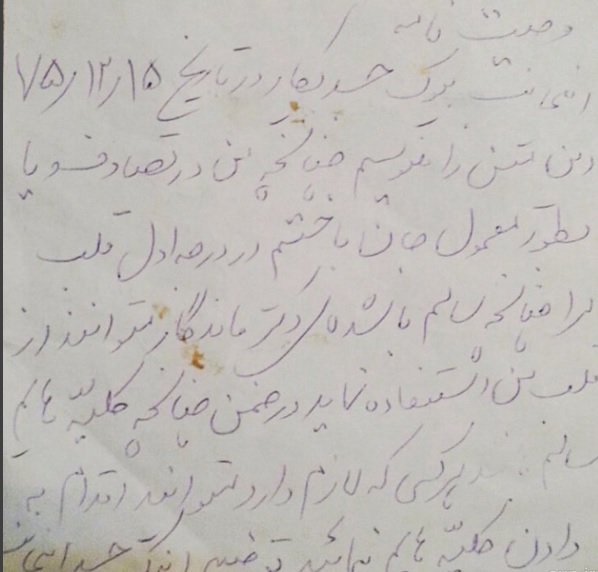 وصیت نامه
اینجانب بیوک جدیکار در تاریخ ۷۵/۱۲/۱۵
این متن را مینویسم چنانچه من در تصادف و یا
بطور معمول جان باختم در درجه اول قلب
مرا چنانچه سالم باشد دکتر ماندگار میتوانند از
قلب من استفاده نماید در ضمن چنانچه کلیه هایم
سالم باشد هر کسی که لازم دارد میتوانند اقدام به
دادن کلیه هایم نمائید